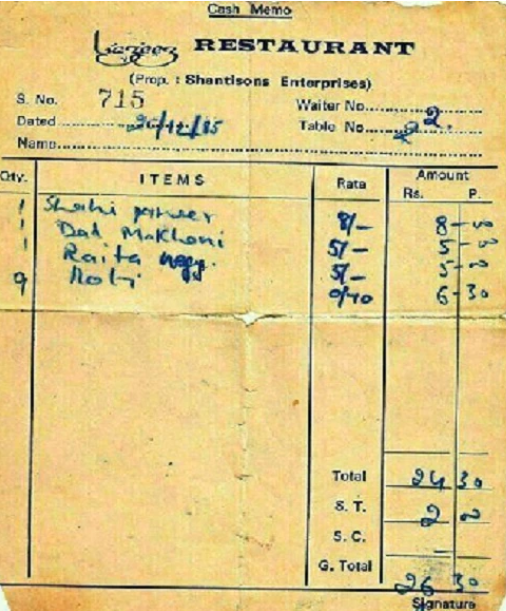 Cash Memo
Lazeez RESTAURANT
(Prop. : Shantisons Enterprises)
S. No. 715 Waiter No. 2.
Dated 20/12/85 Table No. 2
Name
Qty. ITEMS Rate Amount
Rs. P.
1 Shahi paneer 8/- 8-00
1 Dal Makhani 5/- 5-00
1 Raita veg. 5/- 5-00
9 Roti 0/70 6-30
Total 24 30
S. T. 2 00
S. C.
G. Total 26 30
Signature